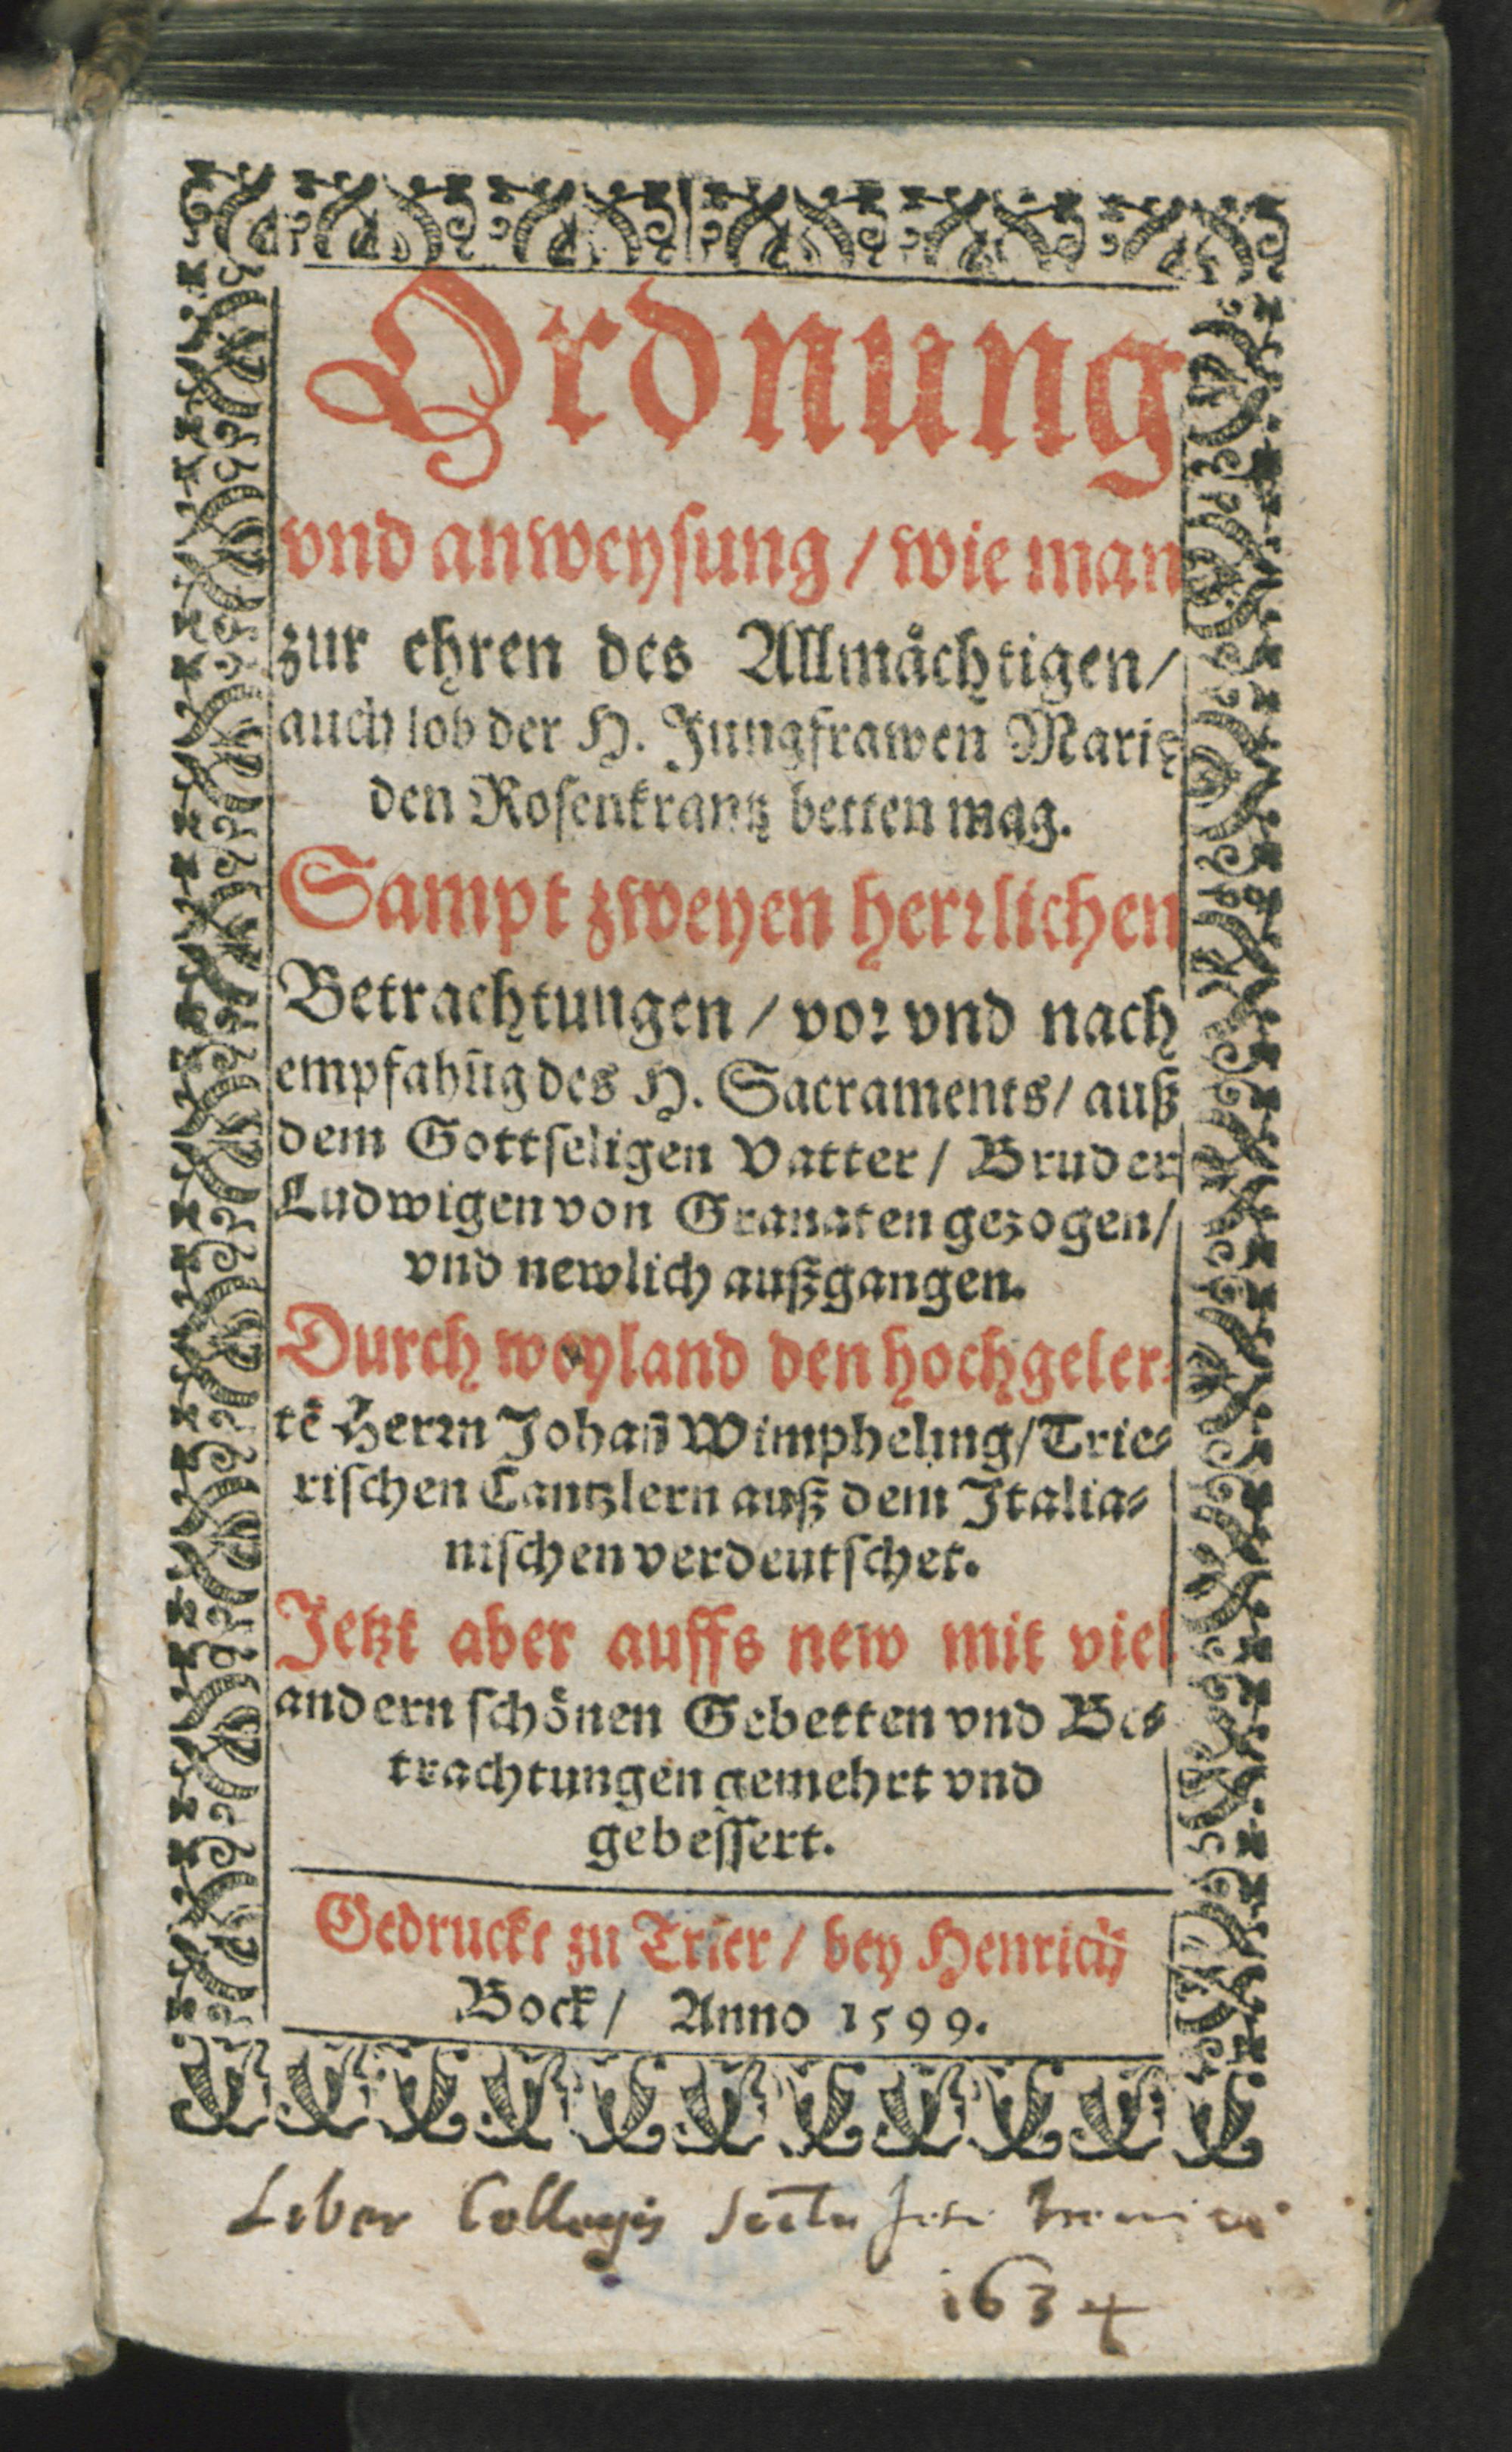 Ordnung
vnd anweysung / wie man
zur ehren des Allmåchtigen /
auch lob der H. Jungfrawen Marię
den Rosenkrantz betten mag.
Sampt zweyen herrlichen
Betrachtungen / vor vnd nach
empfahūg des H. Sacraments / auß
dem Gottseligen Vatter / Bruder
Ludwigen von Granaten gezogen /
vnd newlich außgangen.
Durch weyland den hochgeler-
tē Herrn Johañ Wimpheling / Trie-
rischen Cantzlern auß dem Italia-
nischen verdeutschet.
Jetzt aber auffs new mit viel
andern schönen Gebetten vnd Be-
trachtungen gemehrt vnd
gebessert.
Gedruckt zu Trier / bey Henricū
Bock / Anno 1599.
Liber Collegij Soctis Jesu
1634